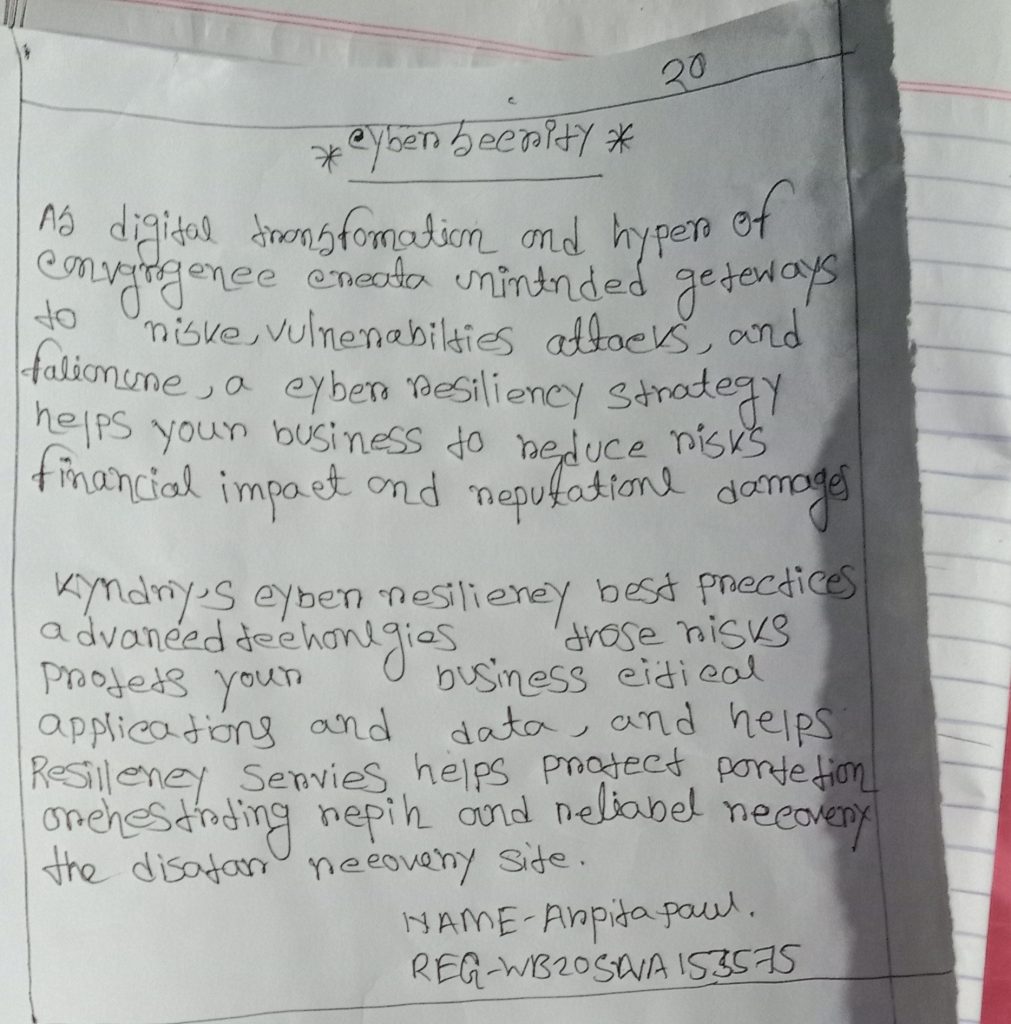 20
* cyber Security *
As digital transfomation and hyper of
convgrgence creata unintnded geteways
to riske, vulnerabilties attacks, and
falionune, a cyber resiliency strategy
helps your business to reduce risks
financial impact and reputationl damages
Kyndry's cyber resiliency best prectices
advanced techonlgies those risks
protets your business citical
applications and data, and helps
Resilleney Servies helps protect portetion
orchestrting repih and reliabel recovery
the disatar recovery site.
NAME-Arpita paul.
REG-WB20SWA153575